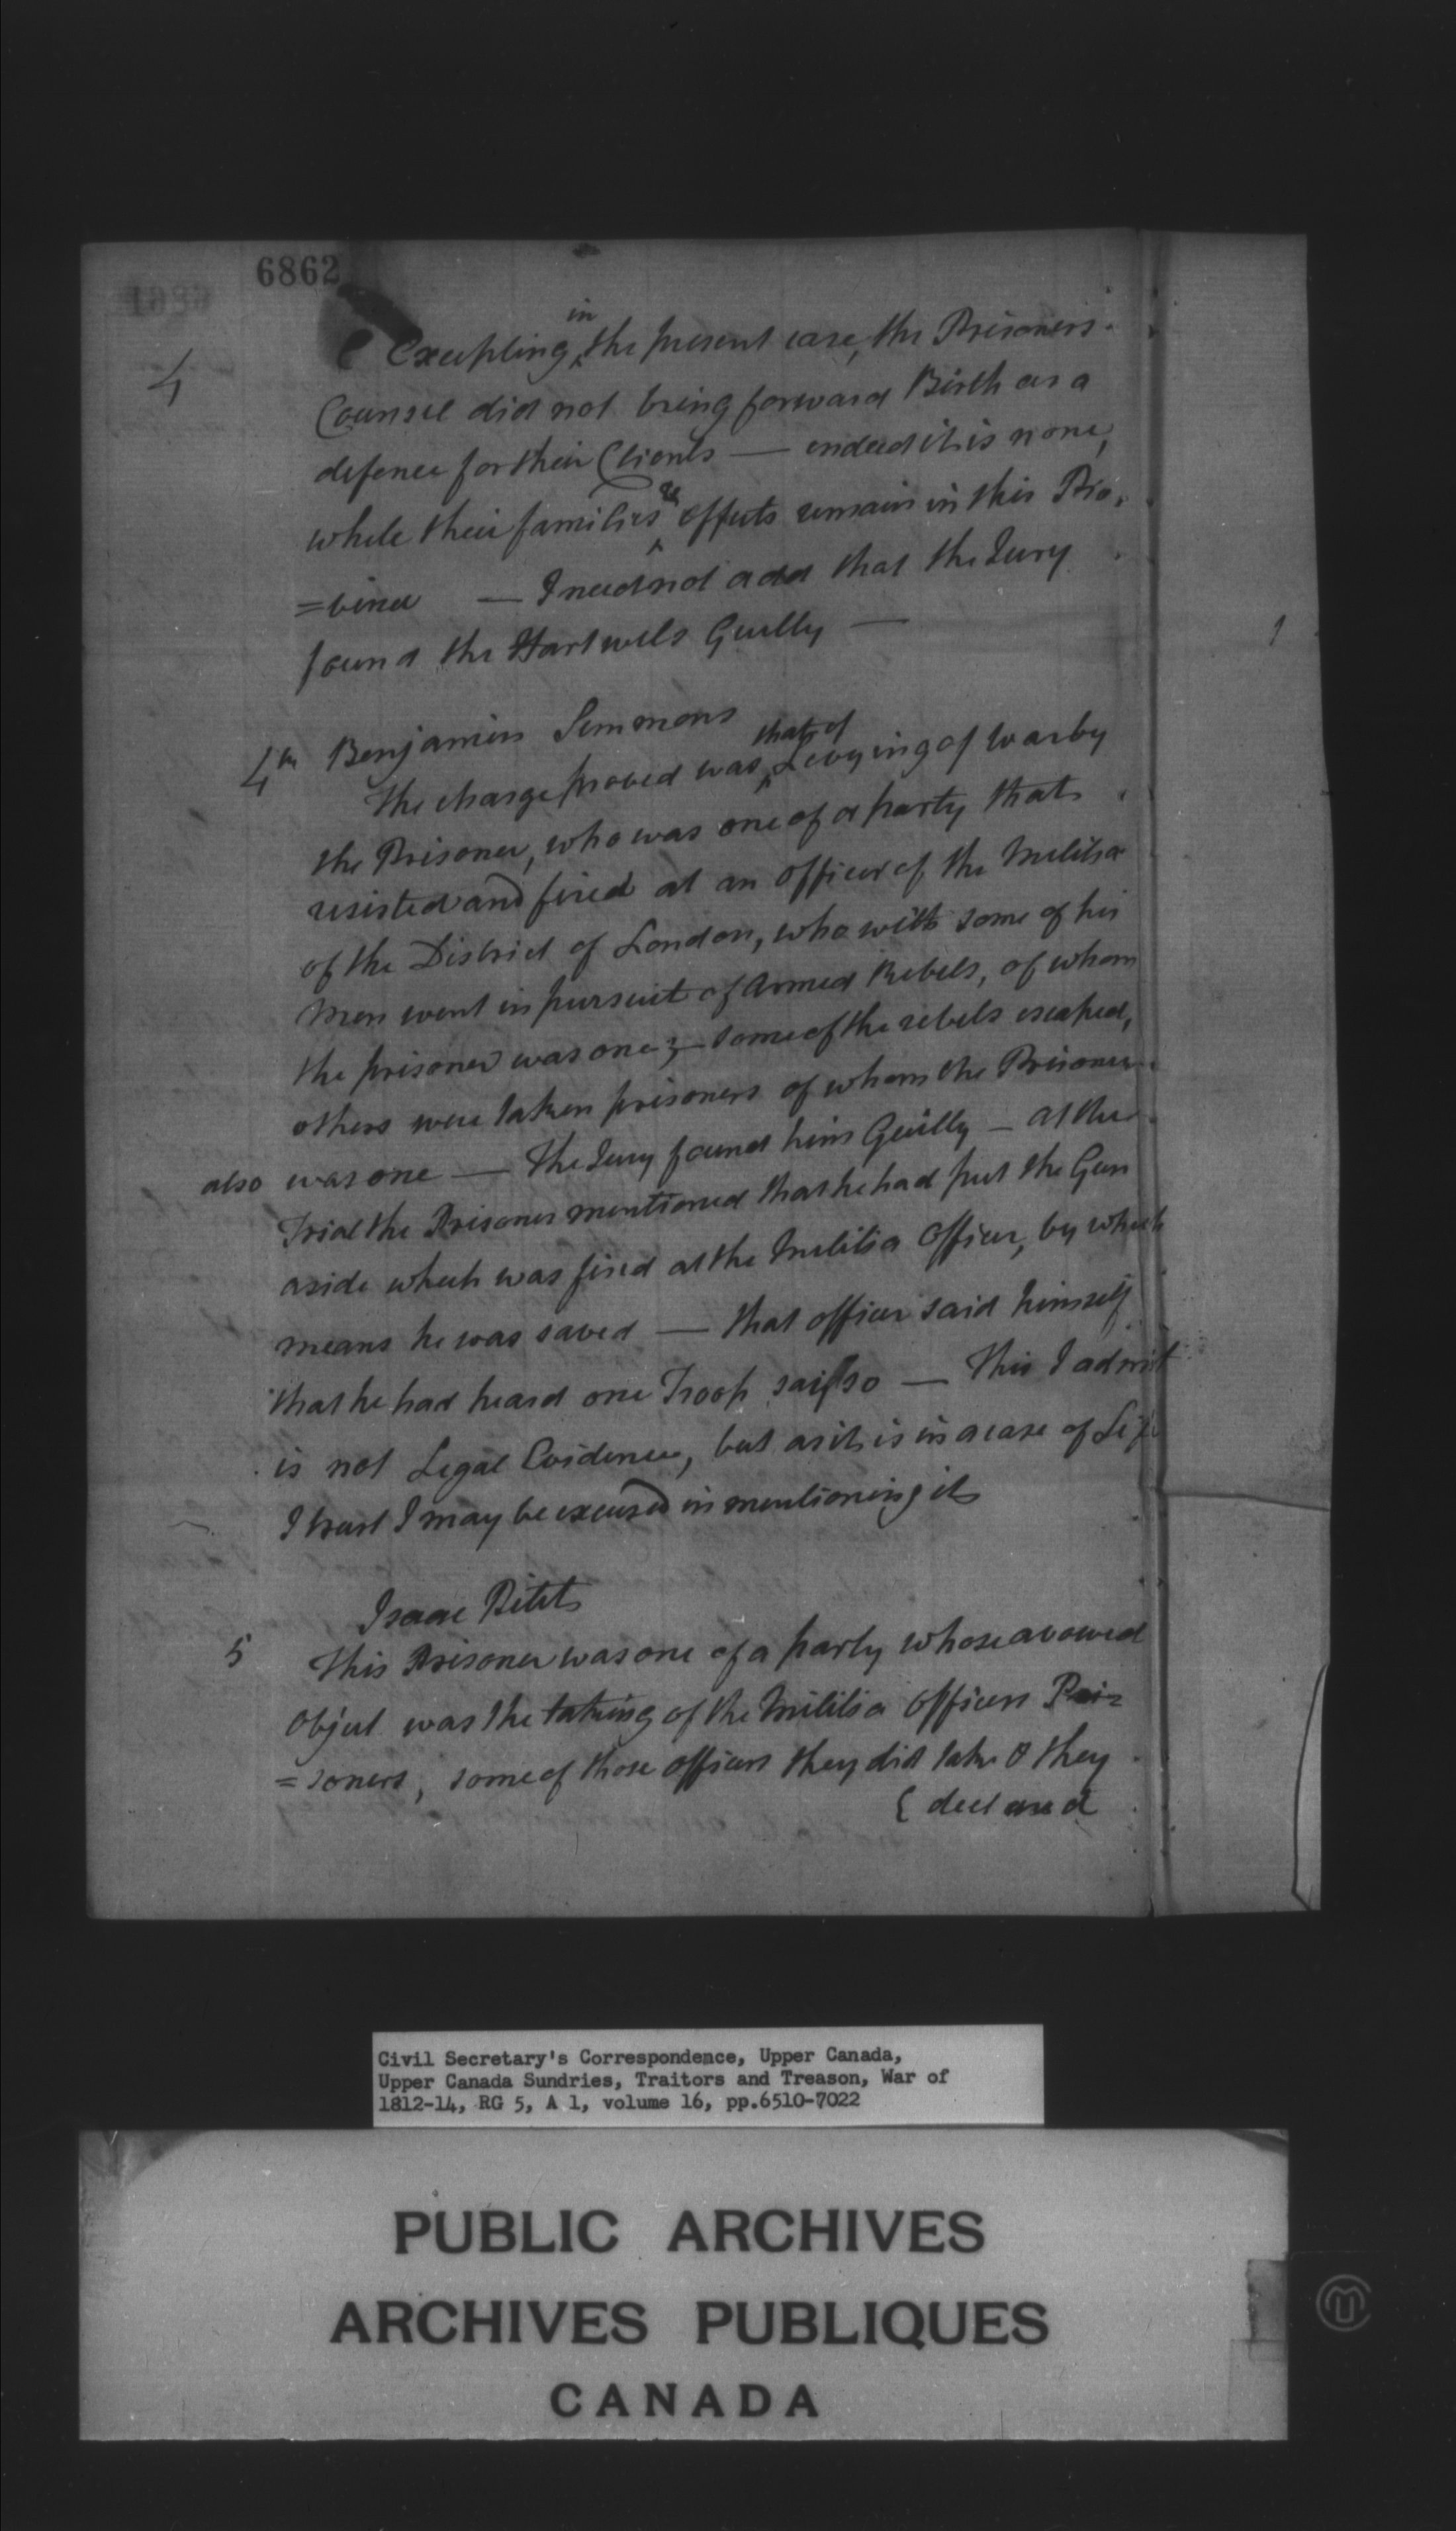 6862
4
Excepting in the present case, the Prisoners
Counsel did not bring forward Birth as a
defence for their Clients — indeed it is none,
while their families & effects remain in this Pro,
=vince — I need not add that the Jury
found the Hartwells Guilty —
4th Benjamin Simmons
The charge proved was that of Levying of War by
the Prisoner, who was one of a party that
resisted and fired at an officer of the Militia
of the District of London, who with some of his
Men went in pursuit of Armed Rebels, of whom
the prisoner was one; — some of the rebels escaped,
others were taken prisoners of whom the Prisoner
also was one — The Jury found him Guilty — at the
Trial the Prisoner mentioned that he had put the Gun
aside which was fired at the Militia Officer, by which
means he was saved — that officer said himself
that he had heard one Troop say so — This I admit
is not Legal Evidence, but as it is in a case of Life
I trust I may be excused in mentioning it
Isaac Petit
5 This Prisoner was one of a party whose avowed
Object was the taking of the Militia Officers Pri=
=soners, some of those officers they did take & they
{ declared
Civil Secretary's Correspondence, Upper Canada,
Upper Canada Sundries, Traitors and Treason, War of
1812-14, RG 5, A 1, volume 16, pp.6510-7022
PUBLIC ARCHIVES
ARCHIVES PUBLIQUES
CANADA